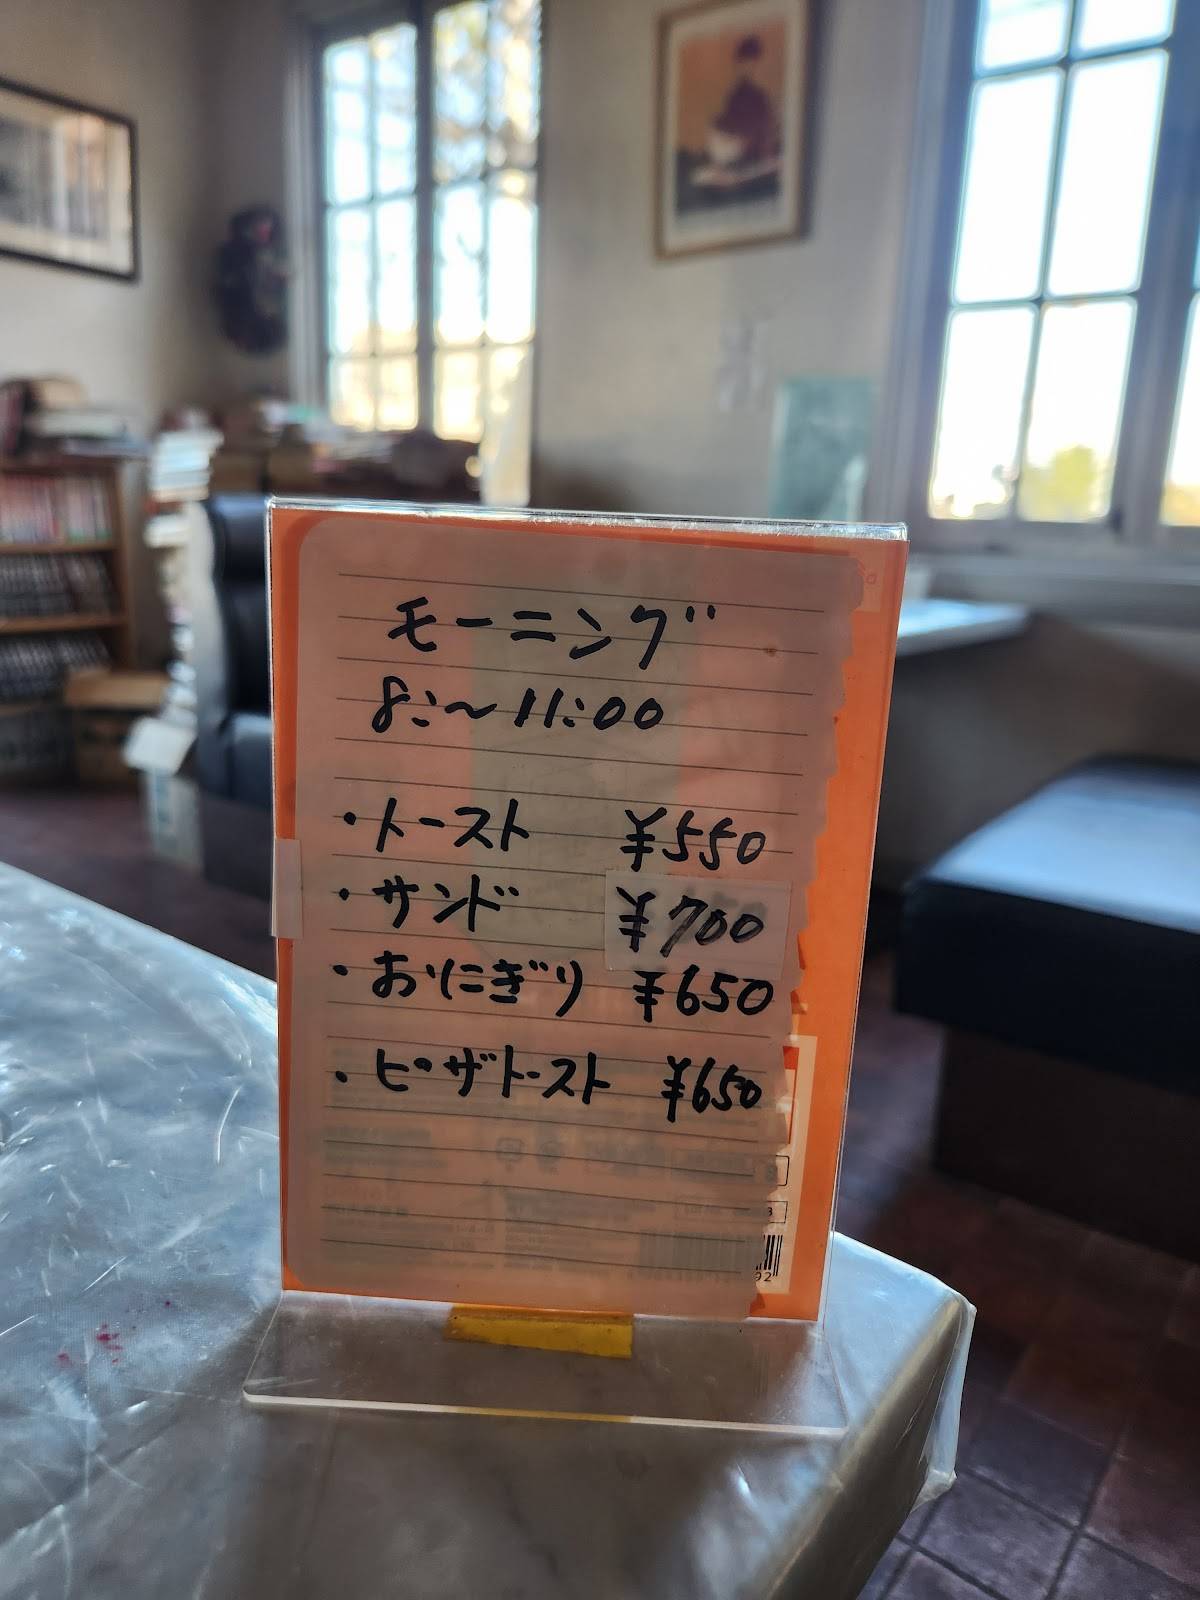 モーニング
8:〜11:00
・トースト ¥550
・サンド ¥700
・おにぎり ¥650
・ピザトースト ¥650
92